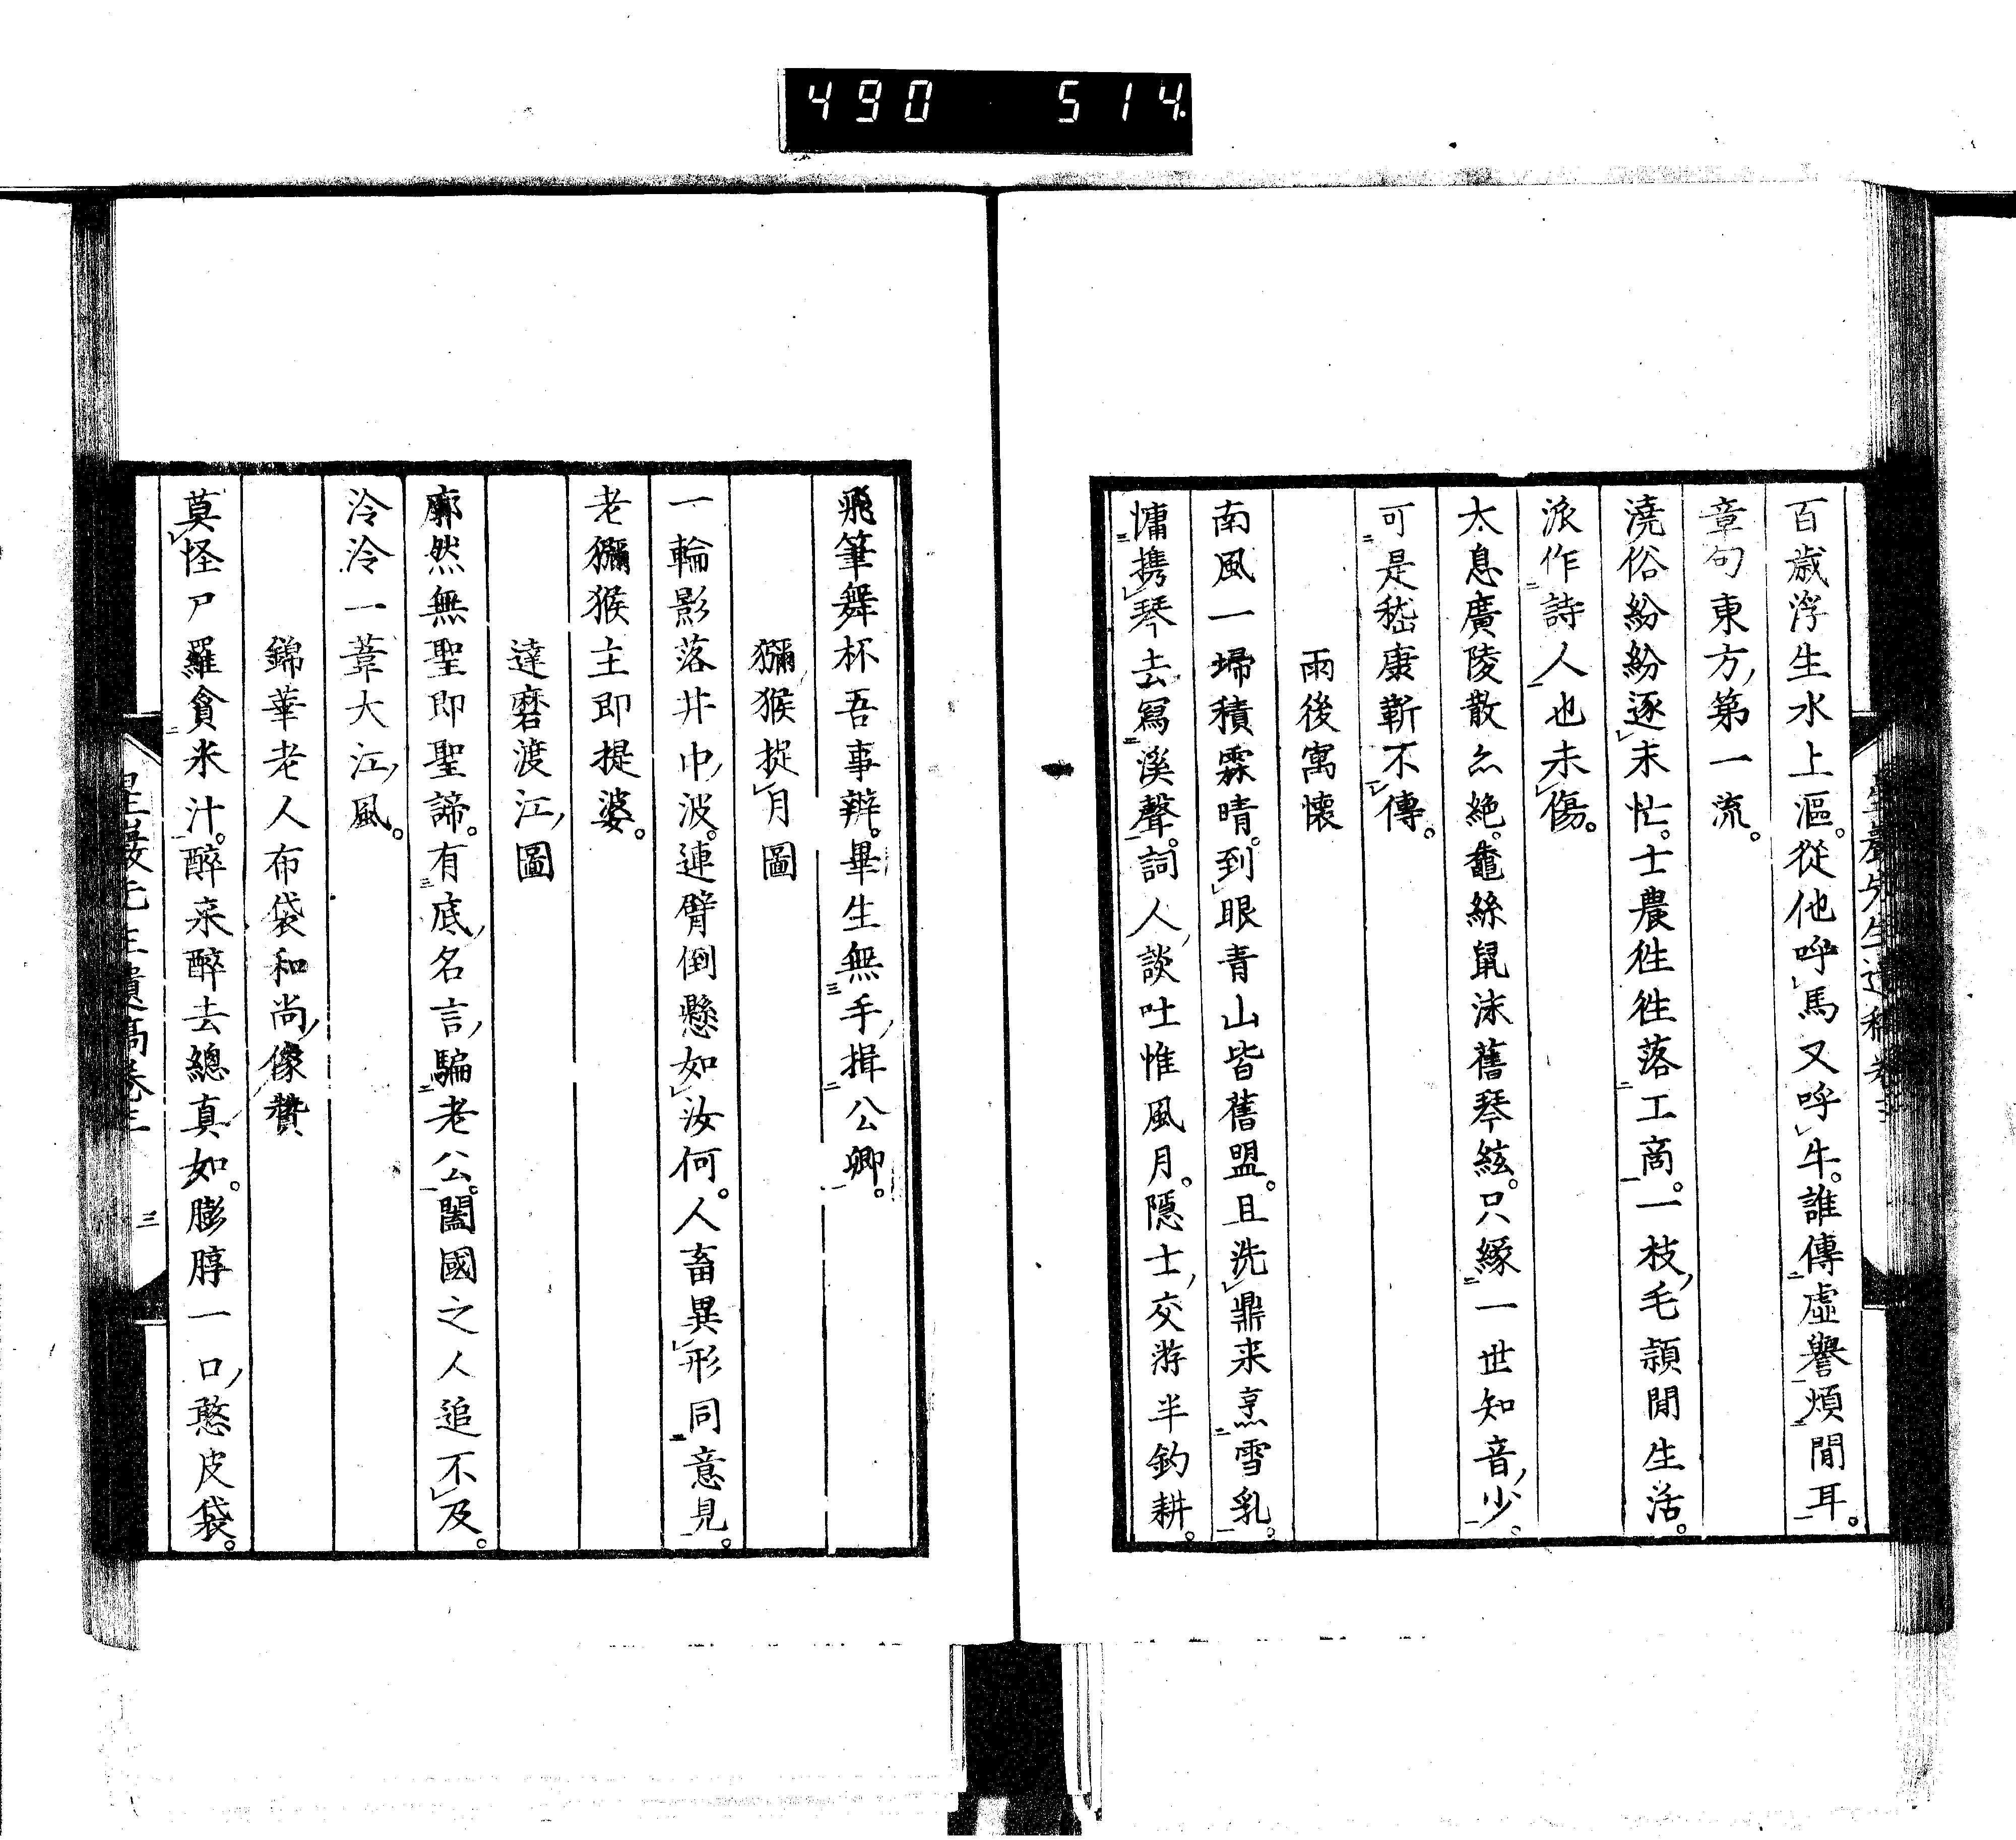 490 514
百歳浮生水上漚。從他呼馬又呼牛。誰傳虛譽煩閒耳。
章句東方第一流。
澆俗紛紛逐末忙。士農徃徃落工商。一枝毛頴閒生活。
派作詩人也未傷。
太息廣陵散亦絶。鼄絲鼠沫舊琴絃。只緣一世知音少。
可是嵇康靳不傳。
雨後寓懷
南風一埽積霖晴。到眼青山皆舊盟。且洗鼎来烹雪乳。
慵携琴去冩溪聲。詞人談吐惟風月。隱士交游半釣耕。
飛筆舞杯吾事辦。畢生無手揖公卿。
獼猴捉月圖
一輪影落井中波。連臂倒懸如汝何。人畜異形同意見。
老獼猴主即提婆。
達磨渡江圖
廓然無聖即聖諦。有底名言騙老公。闔國之人追不及。
泠泠一葦大江風。
錦華老人布袋和尚像贊
莫怪尸羅貪米汁。醉来醉去總真如。膨脝一口憨皮袋。
星巖先生遺稿卷三 三